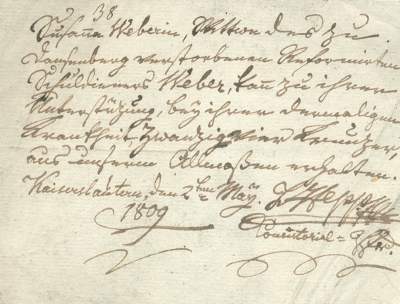 38
Susanna Weberin, Wittwe des zu
Dansenberg verstorbenen Reformirten
Schuldieners Weber, kan zu ihrer
Unterstüzung, bey ihrer dermaligen
Krankheit, zwanzig vier Kreutzer,
aus unserm Allmoßen erhalten.
Kaiserslautern, den 2ten May.
1809
Consistorial =